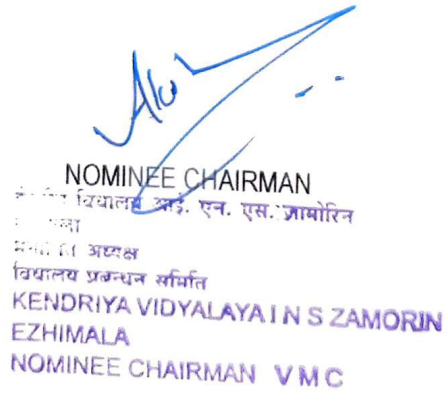 NOMINEE CHAIRMAN
विद्यालय आई. एन. एस. ज़ामोरिन
अध्यक्ष
विद्यालय प्रबन्धन समिति
KENDRIYA VIDYALAYA I N S ZAMORIN
EZHIMALA
NOMINEE CHAIRMAN V M C